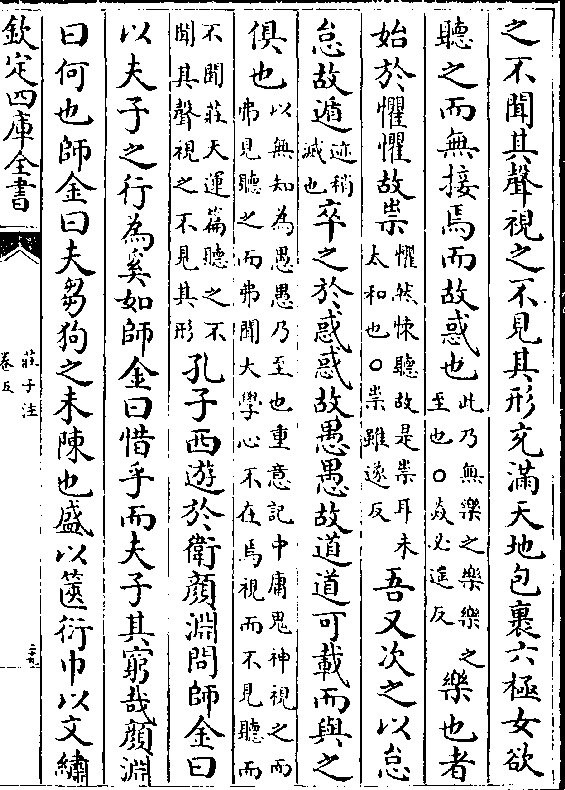 之不聞其聲視之不見其形充滿天地包裹六極女欲
聽之而無接焉而故惑也
此乃無樂之樂樂之
至也○焱必遙反
樂也者
始於懼懼故祟
懼然悚聽故是祟耳未
太和也○祟雖遂反
吾又次之以怠
怠故遁
迹稍
滅也
卒之於惑惑故愚愚故道道可載而與之
俱也
以無知為愚愚乃至也重意記中庸鬼神視之而
弗見聽之而弗聞大學心不在焉視而不見聽而
不聞莊天運篇聽之不
聞其聲視之不見其形
孔子西遊於衛顏淵問師金曰
以夫子之行為奚如師金曰惜乎而夫子其窮哉顏淵
曰何也師金曰夫芻狗之未陳也盛以篋衍巾以文繡
欽定四庫全書
莊子注
卷五